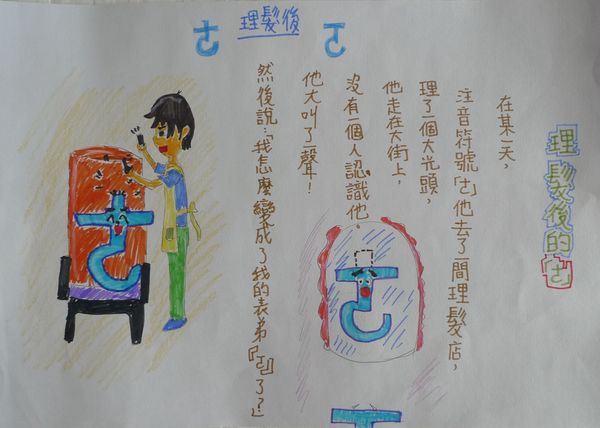 理髮後的「ㄜ」
在某一天，
注音符號「ㄜ」他去了一間理髮店，
理了一個大光頭，
他走在大街上，
沒有一個人認識他。
他大叫了聲！
然後說：「我怎麼變成了我的表弟『ㄛ』了？」
ㄜ 理髮後 ㄛ